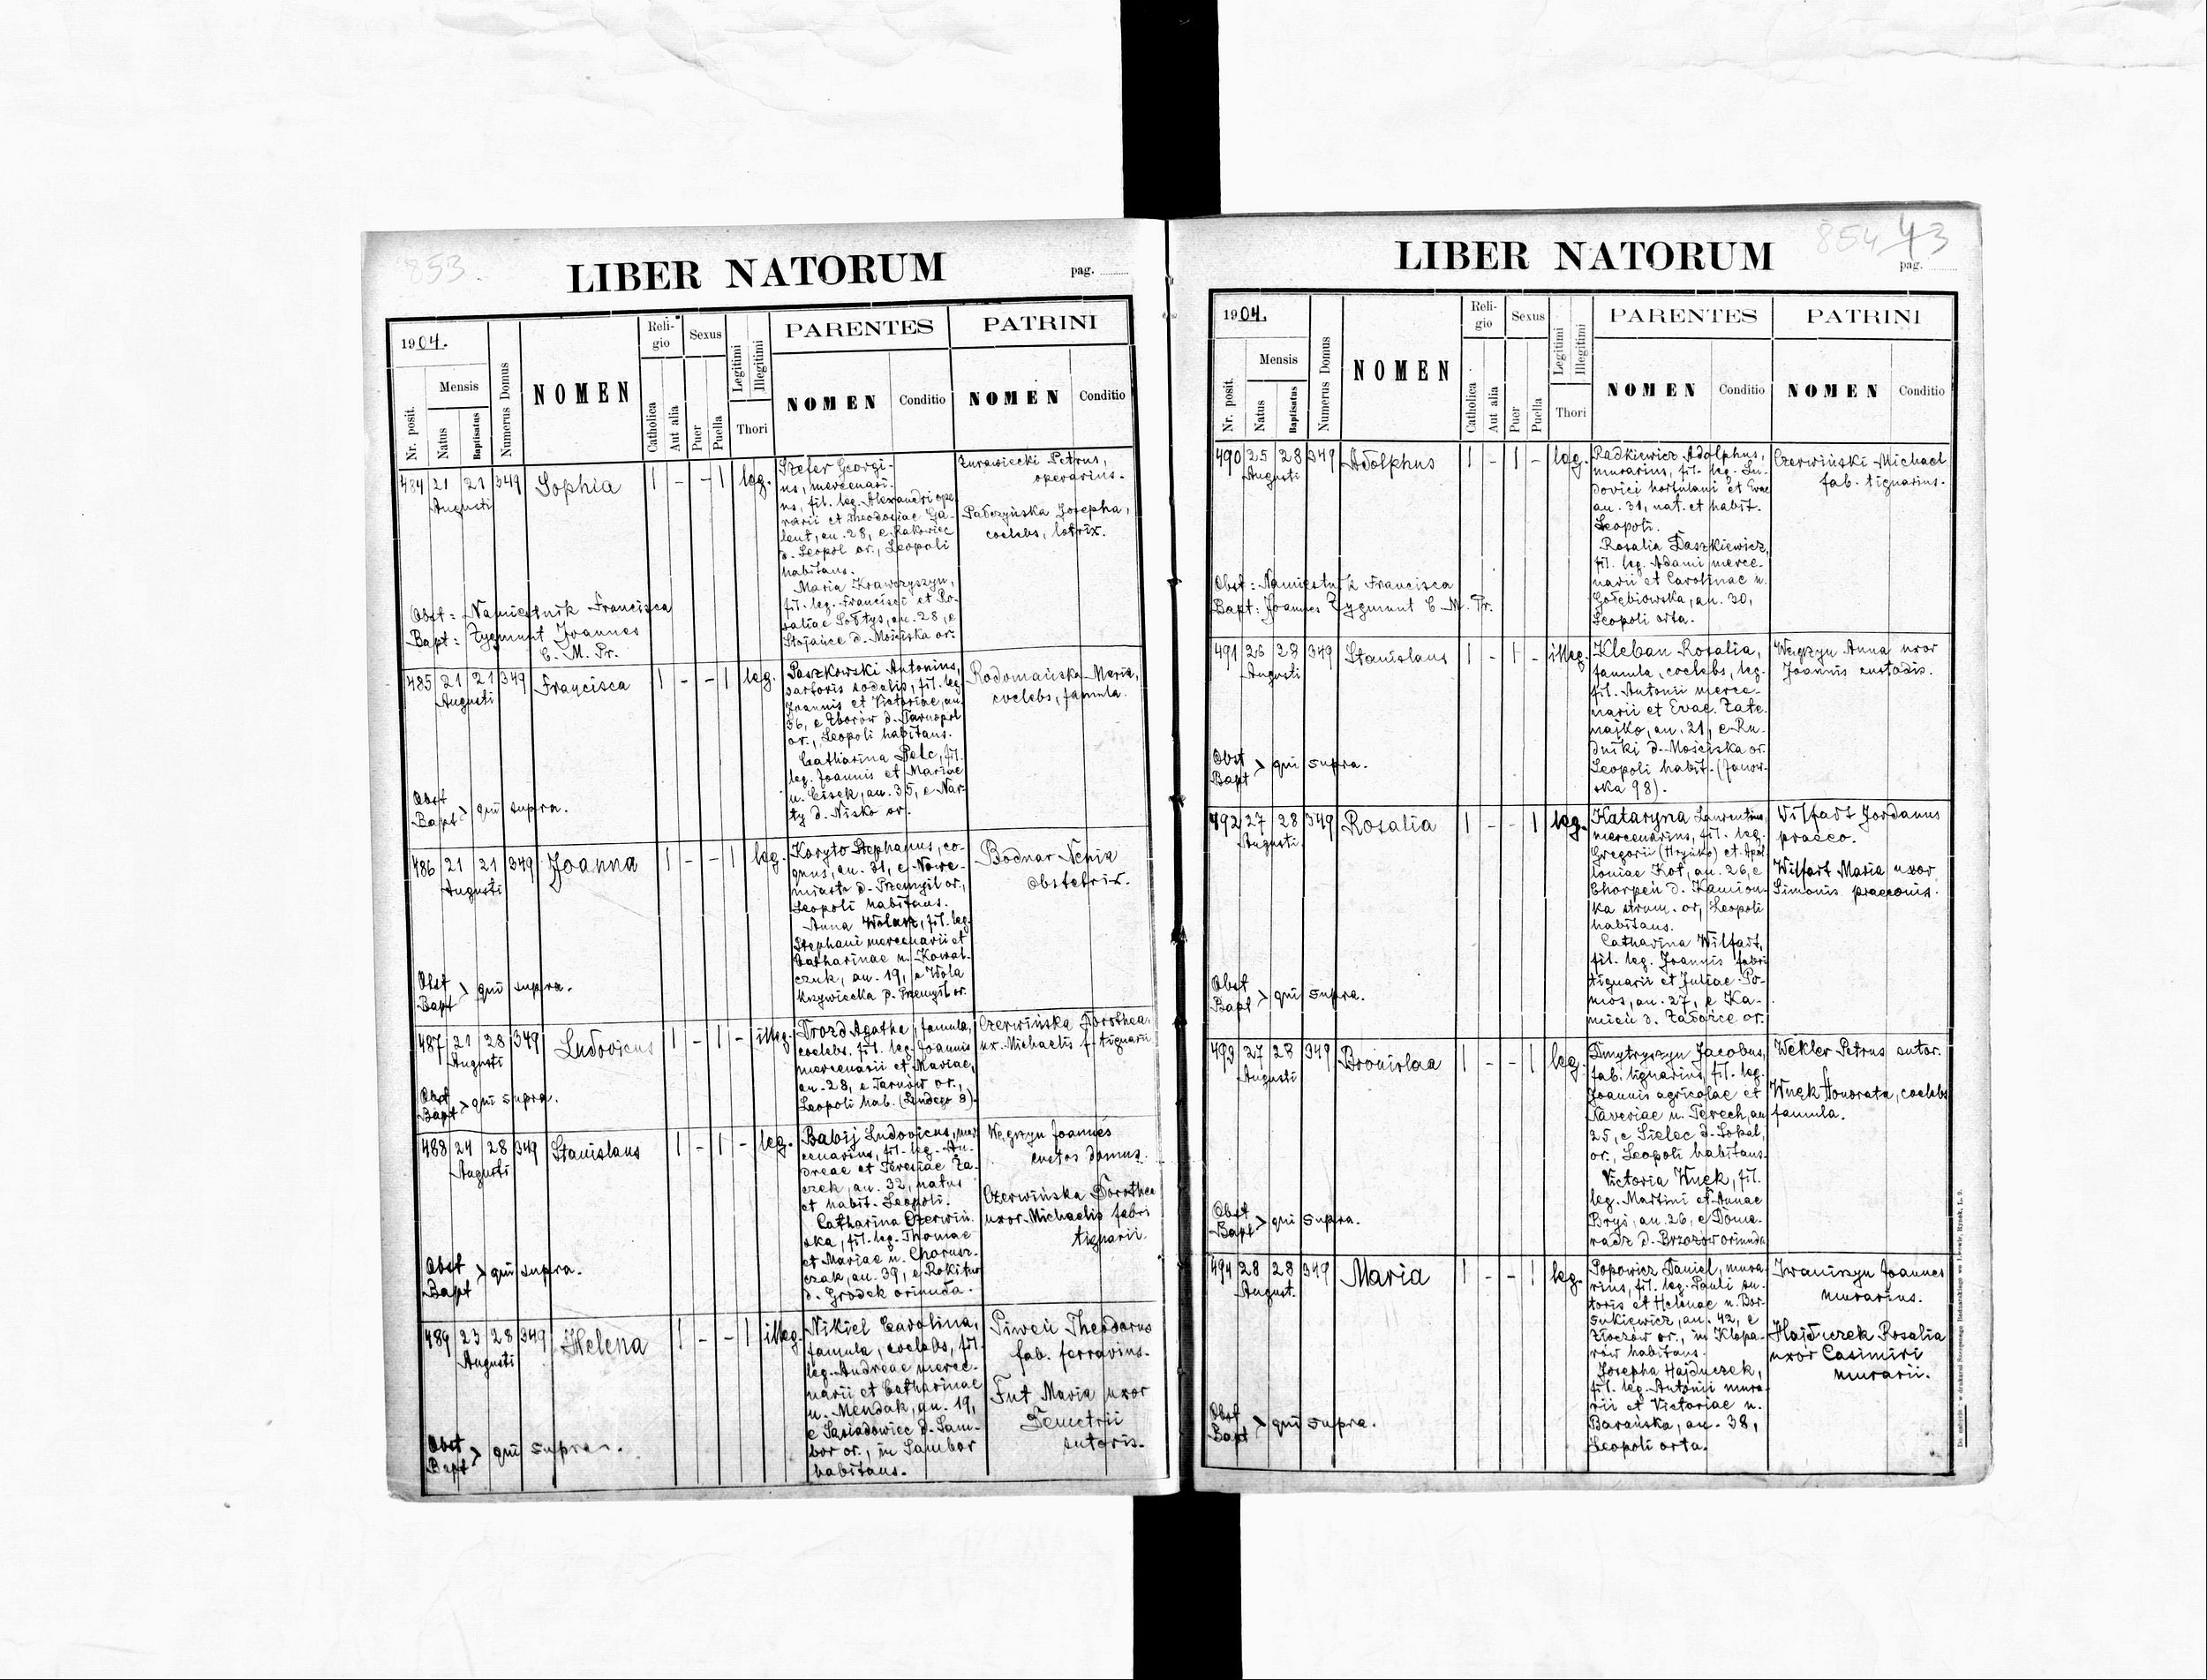 853.
LIBER NATORUM
pag.
1904.
Nr. posit.
Mensis
Natus
Baptisatus
Numerus Domus
NOMEN
Reli-
gio
Catholica
Aut alia
Sexus
Puer
Puella
Legitimi
Illegitimi
Thori
PARENTES
NOMEN
Conditio
PATRINI
NOMEN
Conditio
484 21 21 349 Sophia 1 - - 1 leg.
Augusti
Szefer Georgi-
us, mercenari-
us, fil. leg. Alexandri ope-
rarii et Theodosiae Ga-
lent, an. 28, e Rakowiec
d. Leopol or., Leopoli
habitans.
Maria Krawczyszyn,
fil. leg. Francisci et Ro-
saliae Sołtys, an. 28, e
Stojańce d. Mościska or.
Żurawiecki Petrus,
operarius.
Pałczyńska Josepha,
coelebs, lotrix.
Obst: Namiestnik Francisca
Bapt: Zygmunt Joannes
C. M. Pr.
485 21 21 349 Francisca 1 - - 1 leg.
Augusti
Paszkowski Antonius,
sartoris sodalis, fil. leg.
Joannis et Victoriae, an.
36, e Zborów d. Tarnopol
or., Leopoli habitans.
Catharina Pelc, fil.
leg. Joannis et Mariae
n. Cisek, an. 35, e Nar-
ty d. Nisko or.
Radomańska Maria,
coelebs, famula.
Obst
Bapt > qui supra.
486 21 21 349 Joanna 1 - - 1 leg.
Augusti
Koryto Stephanus, co-
quus, an. 31, e Nowe-
miasto d. Przemyśl or.,
Leopoli habitans.
Anna Wołasz, fil. leg.
Stephani mercenarii et
Catharinae n. Kowal-
czuk, an. 19, e Wola
krzywiecka p. Przemyśl or.
Bodnar Xenia
obstetrix.
Obst
Bapt > qui supra.
487 21 28 349 Ludovicus 1 - 1 - illeg.
Augusti
Drozd Agatha, famula,
coelebs, fil. leg. Joannis
mercenarii et Mariae,
an. 28, e Tarnów or.,
Leopoli hab. (Lindego 8).
Czerwińska Dorothea,
ux. Michaelis f. tignarii
Obst
Bapt > qui supra.
488 24 28 349 Stanislaus 1 - 1 - leg.
Augusti
Babij Ludovicus, mer-
cenarius, fil. leg. An-
dreae et Teresiae Za-
czek, an. 32, natus
et habit. Leopoli.
Catharina Czerwiń-
ska, fil. leg. Thomae
et Mariae n. Charusz-
czak, an. 39, e Rokitno
d. Gródek oriunda.
Węgrzyn Joannes
custos domus.
Czerwińska Dorothea
uxor Michaelis fabri
tignarii.
Obst
Bapt > qui supra.
489 23 28 349 Helena 1 - - 1 illeg.
Augusti
Nikiel Carolina,
famula, coelebs, fil.
leg. Andreae merce-
narii et Catharinae
n. Mendak, an. 19,
e Sąsiadowice d. Sam-
bor or., in Sambor
habitans.
Piweń Theodorus
fab. ferrarius.
Fut Maria uxor
Demetrii
sutoris.
Obst
Bapt > qui supra.
854 43
LIBER NATORUM
pag.
1904.
Nr. posit.
Mensis
Natus
Baptisatus
Numerus Domus
NOMEN
Reli-
gio
Catholica
Aut alia
Sexus
Puer
Puella
Legitimi
Illegitimi
Thori
PARENTES
NOMEN
Conditio
PATRINI
NOMEN
Conditio
490 25 28 349 Adolphus 1 - 1 - leg.
Augusti
Radkiewicz Adolphus,
murarius, fil. leg. Lu-
dovici hortulani et Evae
an. 31, nat. et habit.
Leopoli.
Rosalia Daszkiewicz,
fil. leg. Adami merce-
narii et Carolinae n.
Gołębiowska, an. 30,
Leopoli orta.
Czerwiński Michael
fab. tignarius.
Obst: Namiestnik Francisca
Bapt: Joannes Zygmunt C. M. Pr.
491 26 28 349 Stanislaus 1 - 1 - illeg.
Augusti
Kleban Rosalia,
famula, coelebs, leg.
fil. Antonii merce-
narii et Evae Zate-
majko, an. 21, e Ru-
dniki d. Mościska or.
Leopoli habit. (Janow-
ska 98).
Węgrzyn Anna uxor
Joannis custodis.
Obst
Bapt > qui supra.
492 27 28 349 Rosalia 1 - - 1 leg.
Augusti
Kataryna Laurentius,
mercenarius, fil. leg.
Gregorii (Hryńko) et Apol-
loniae Kot, an. 26, e
Chorpiń d. Kamion-
ka strum. or., Leopoli
habitans.
Catharina Wilfart,
fil. leg. Joannis fabri
tignarii et Juliae Po-
mos, an. 27, e Ka-
mień d. Załoźce or.
Wilfart Jordanus
praeco.
Wilfart Maria uxor
Simonis praeconis.
Obst
Bapt > qui supra.
493 27 28 349 Bronislaa 1 - - 1 leg.
Augusti
Dmytryszyn Jacobus,
fab. tignarius, fil. leg.
Joannis agricolae et
Xaveriae n. Terech, an
25, e Sielec d. Sokal,
or., Leopoli habitans.
Victoria Wnęk, fil.
leg. Martini et Annae
Bryś, an. 26, e Doma-
radz d. Brzozów oriunda
Wekler Petrus sutor.
Wnęk Honorata, coelebs
famula.
Obst
Bapt > qui supra.
494 28 28 349 Maria 1 - - 1 leg.
August.
Popowicz Daniel, mura-
rius, fil. leg. Pauli su-
toris et Helenae n. Bor-
sukiewicz, an. 42, e
Złoczów or., in Klepa-
rów habitans.
Josepha Hajduczek,
fil. leg. Antonii mura-
rii et Victoriae n.
Barańska, an. 38,
Leopoli orta.
Iwaniszyn Joannes
murarius.
Hajduczek Rosalia
uxor Casimiri
murarii.
Obst
Bapt > qui supra.